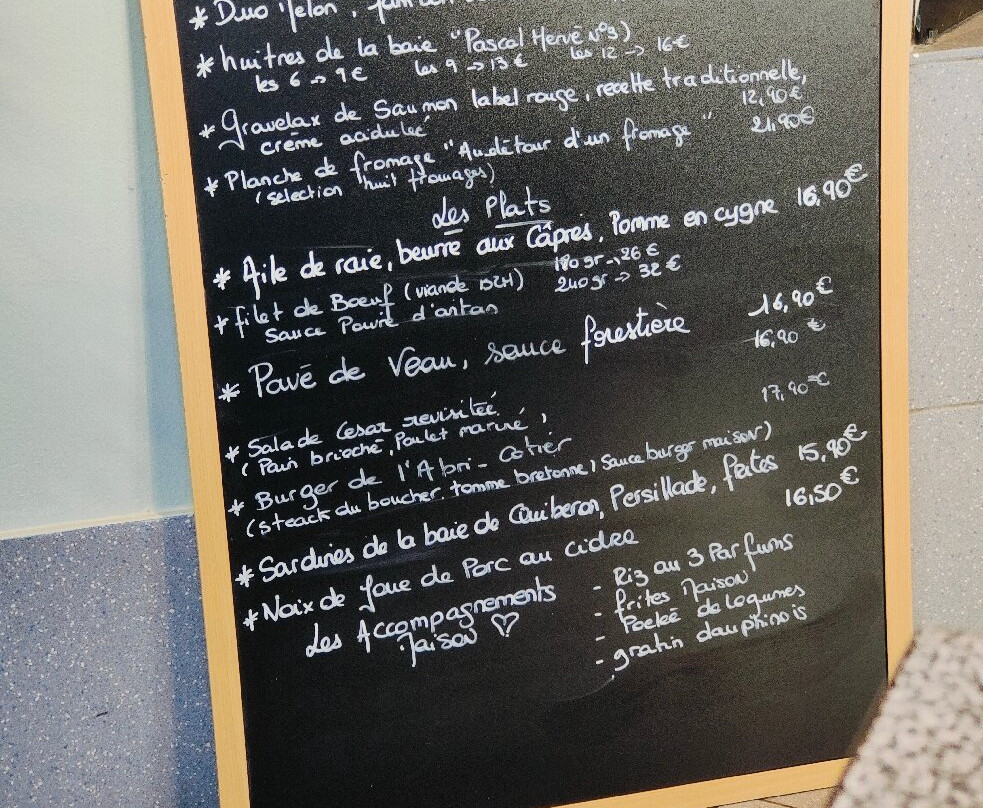 * Duo Melon,
* huitres de la baie "Pascal Hervé N°3)
les 6 → 9€ les 9 → 13€ les 12 → 16€
* Gravelax de Saumon label rouge, recette traditionnelle,
crème acidulée 12,90€
* Planche de fromage "Au détour d'un fromage" 21,90€
(selection huit fromages)
Les Plats
* Aile de raie, beurre aux Câpres, Pomme en cygne 16,90€
* filet de Boeuf (viande BZH) 180gr → 26€
Sauce Poivre d'antan 240gr → 32€
* Pavé de Veau, sauce forestière 16,90€
* Salade Cesar revisitée 16,90€
(Pain brioché, Poulet mariné,
* Burger de l'Abri-Cotier 17,90€
(Steack du boucher, tomme bretonne, Sauce burger maison)
* Sardines de la baie de Quiberon, Persillade, frites 15,90€
* Noix de Joue de Porc au cidre 16,50€
Les Accompagnements
Maison ♡
- Riz au 3 Parfums
- frites Maison
- Poelée de legumes
- gratin dauphinois